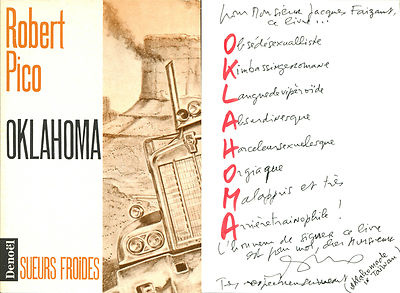 Robert
Pico
OKLAHOMA
Denoël
SUEURS FROIDES
Pour Monsieur Jacques Faizant,
ce livre...
Obsédésexualliste
Kimbassingeromane
Languedevipéroïde
Absurdinesque
Harceleursexuelesque
Orgiaque
Malappris et très
Arrièretrainophile!
L'honneur de signer ce livre
est pour moi, cher Monsieur
Très respectueusement